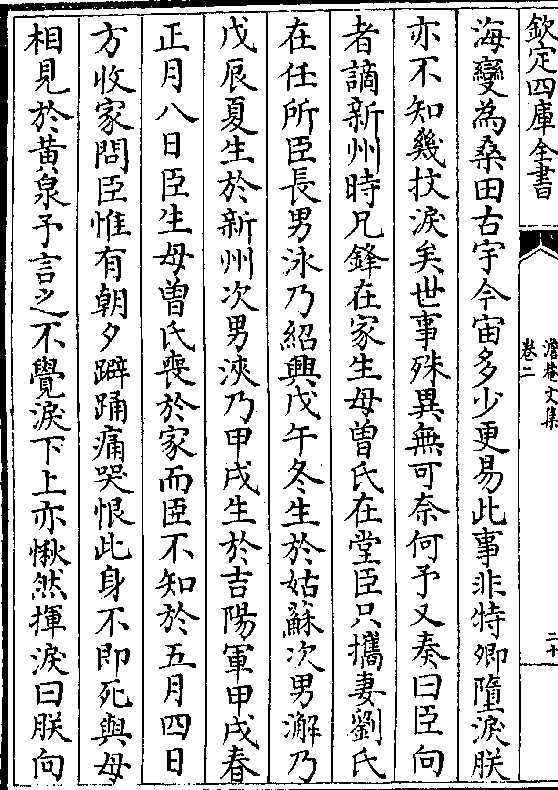 欽定四庫全書
澹菴文集
卷二
二十
海變為桑田古宇今宙多少更易此事非特卿墮淚朕
亦不知幾抆淚矣世事殊異無可奈何予又奏曰臣向
者謫新州時兄鋒在家生母曽氏在堂臣只攜妻劉氏
在任所臣長男泳乃紹興戊午冬生於姑蘇次男澥乃
戊辰夏生於新州次男浹乃甲戌生於吉陽軍甲戌春
正月八日臣生母曽氏喪於家而臣不知於五月四日
方收家問臣惟有朝夕躃踊痛哭恨此身不即死與母
相見於黄泉予言之不覺淚下上亦愀然揮淚曰朕向